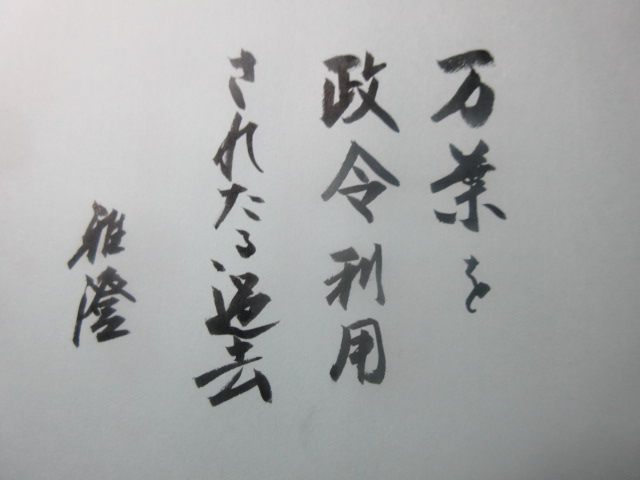 万葉を
政令利用
されたる過去
雅澄